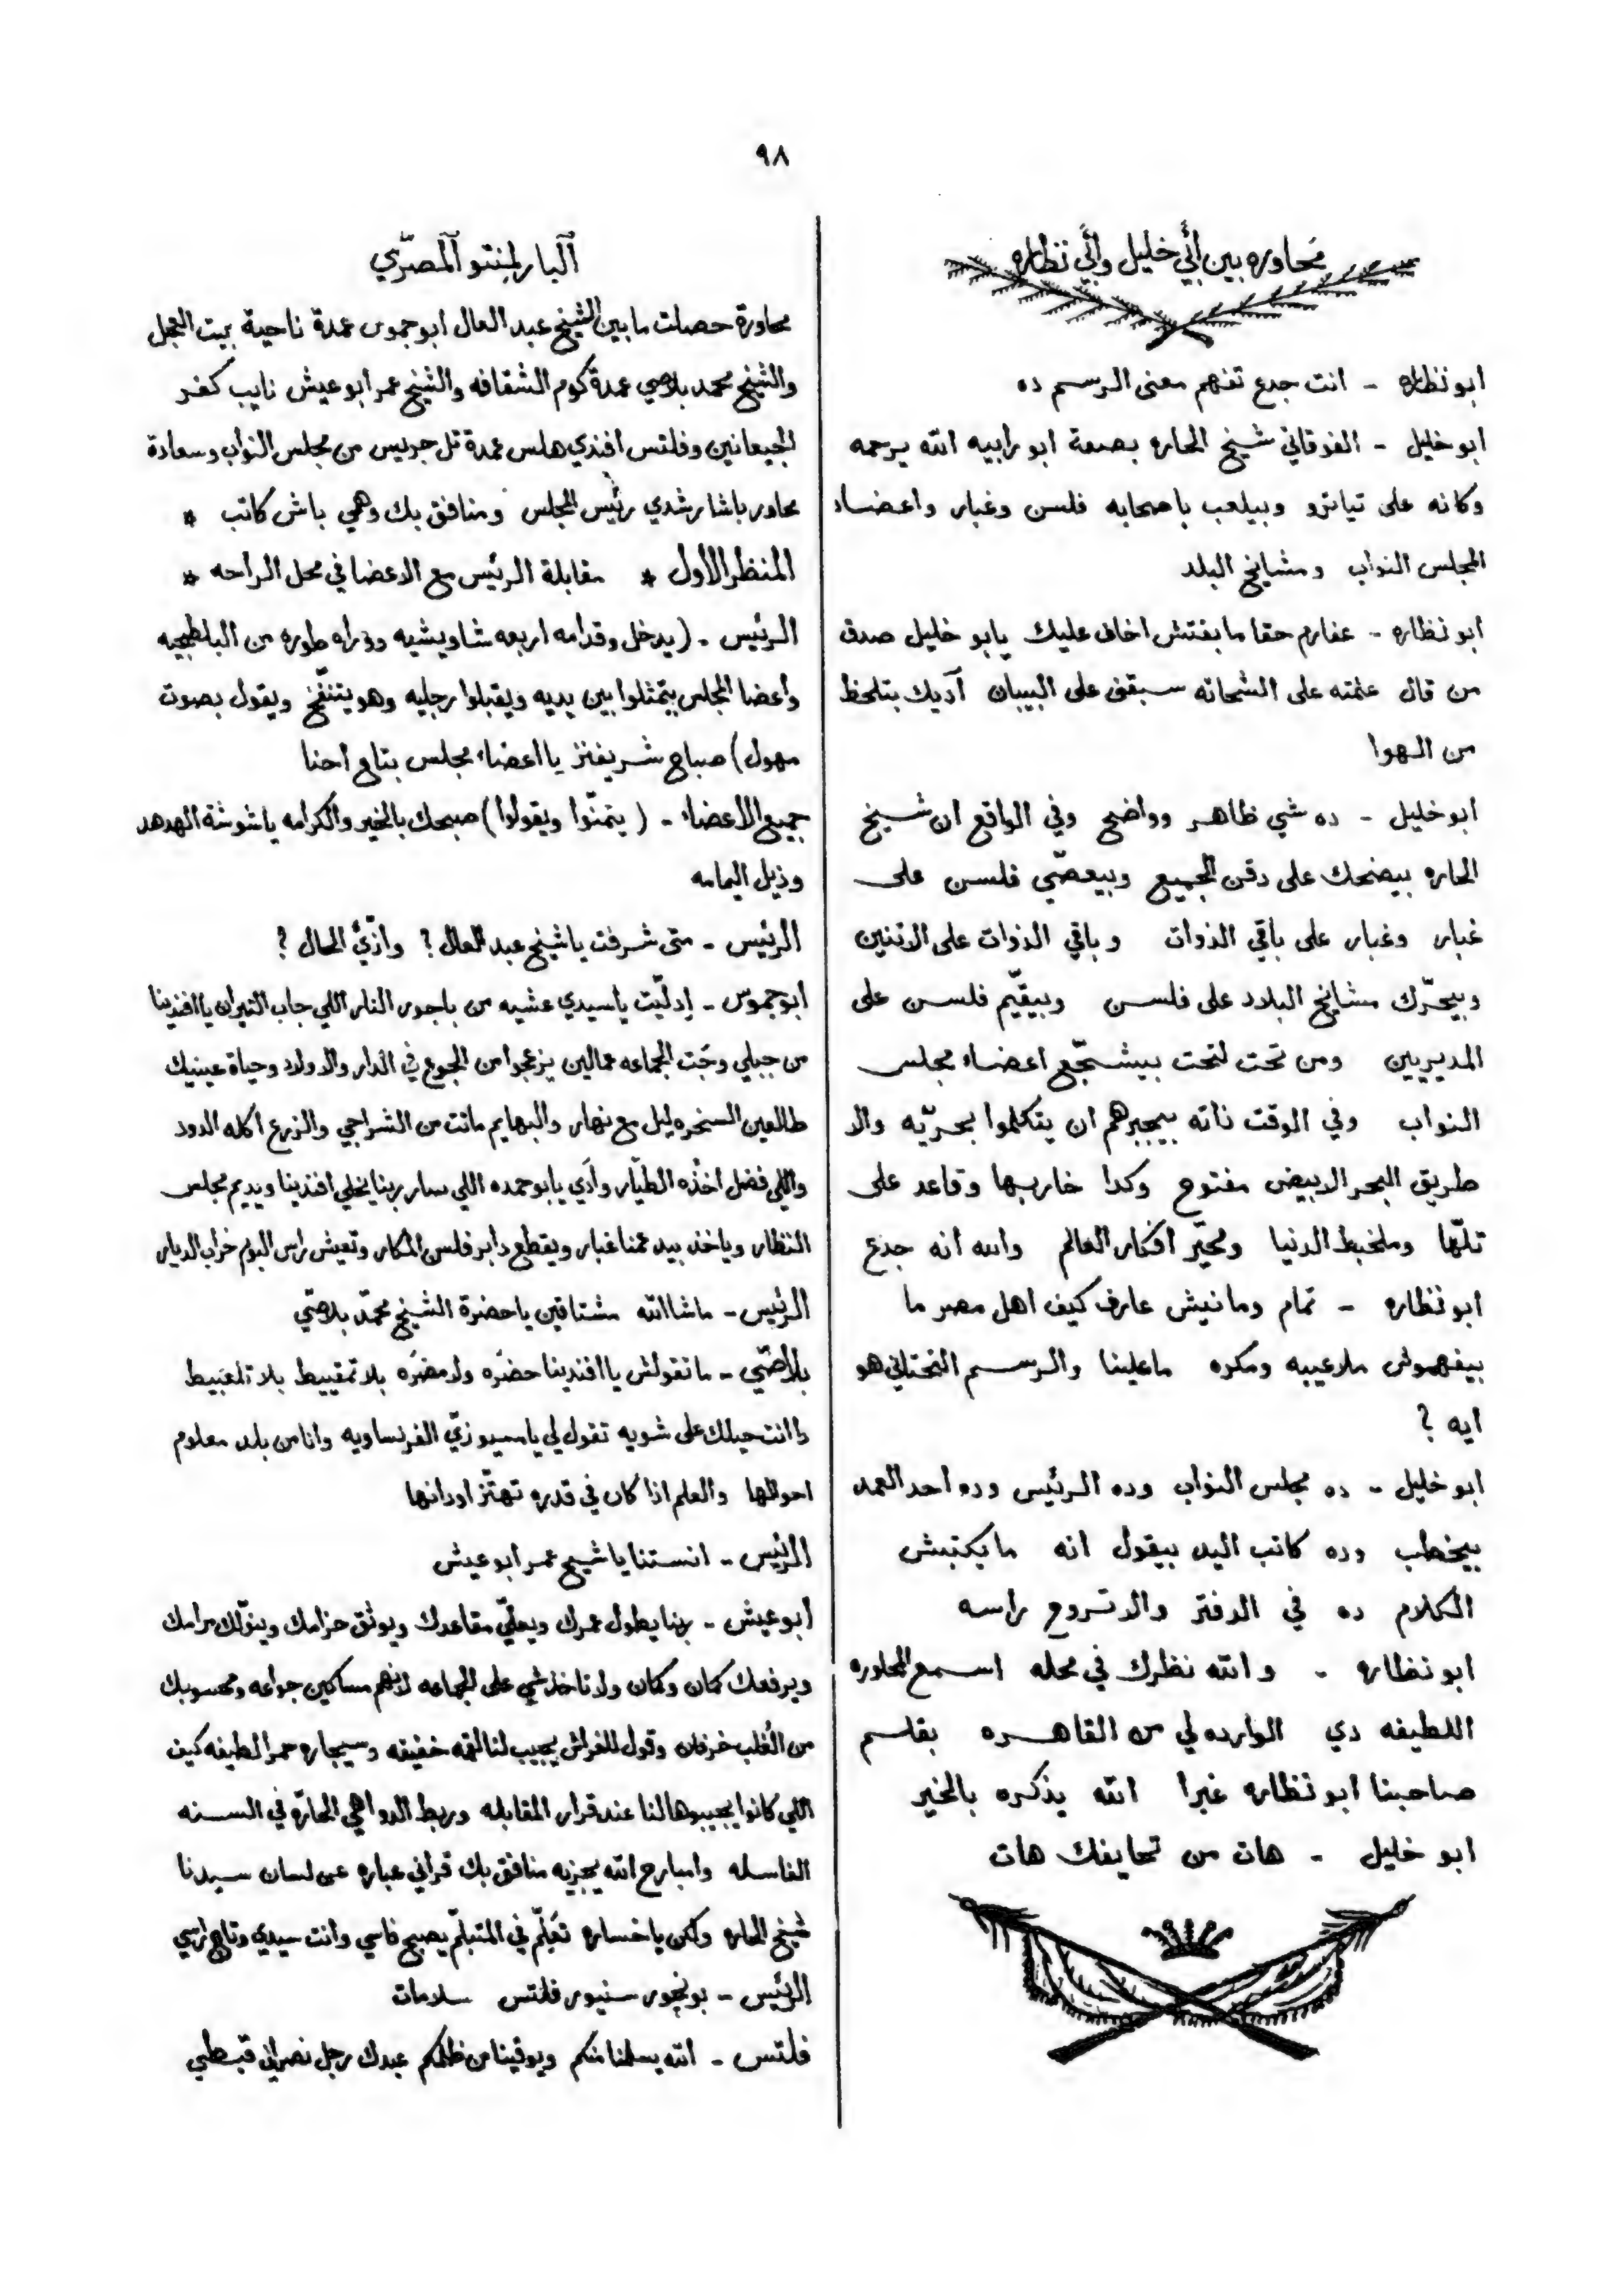 ٩٨
محاوره بين أبي خليل وأبي نظاره
ابو نظاره - انت جدع تفهم معنى الرسم ده
ابو خليل - الفوقاني شيخ الحاره بصفة ابو رابيه الله يرحمه
وكانه على تياترو وبيلعب باصحابه فلسن وغبار واعضاء
المجلس النواب ومشايخ البلد
ابو نظاره - عفارم حقا ما بقتش اخاف عليك يابو خليل صدق
من قال علمته على الشحاته سبقني على البيبان آديك بتلحظ
من الهوا
ابو خليل - ده شي ظاهر وواضح وفي الواقع ان شيخ
الحاره بيضحك على دقن الجميع وبيعصّي فلسن على
غبار وغبار على باقي الذوات وباقي الذوات على الاتنين
وبيحرّك مشايخ البلاد على فلسن وبيقيّم فلسن على
المديريين ومن تحت لتحت بيشجّع اعضاء مجلس
النواب وفي الوقت ذاته بيجبرهم ان يتكلموا بحريّه والا
طريق البحر الابيض مفتوح وكدا خاربها وقاعد على
تلّها وملخبط الدنيا ومحيّر افكار العالم والله انه جدع
ابو نظاره - تمام ومانيش عارف كيف اهل مصر ما
بيفهموش ملاعيبه ومكره ماعلينا والرسم التحتاني هو
ايه ؟
ابو خليل - ده مجلس النواب وده الرئيس وده احد العمد
بيخطب وده كاتب اليد بيقول انه ما يكتبش
الكلام ده في الدفتر والا تروح راسه
ابو نظاره - والله نظرك في محله اسمع المحاوره
اللطيفه دي الوارده لي من القاهره بقلم
صاحبنا ابو نظاره غبرا الله يذكره بالخير
ابو خليل - هات من تحايفك هات
ٱلبارلمنتو ٱلمصرّي
محاورة حصلت ما بين الشيخ عبد العال ابو جموس عمدة ناحية بيت العجل
والشيخ محمد بلاصي عمدة كوم الشقافه والشيخ عمر ابو عيش نايب كفر
الجيعانين وفلتس افندي هلس عمدة تل جريس من مجلس النواب وسعادة
محاور باشا رشدي رئيس المجلس ومنافق بك وهمي باش كاتب *
المنظر الاول * مقابلة الرئيس مع الاعضا في محل الراحه *
الرئيس - (يدخل وقدامه اربعه شاويشيه ووراه طوره من البلطجيه
وأعضا المجلس يتمثلوا بين يديه ويقبلوا رجليه وهو يتنفّخ ويقول بصوت
مهول) صباح شريفنز يا اعضاء مجلس بتاع احنا
جميع الاعضاء - (يتمنّوا ويقولوا) صبحك بالخير والكرامه ياشوشة الهدهد
وذيل اليمامه
الرئيس - متى شرفت ياشيخ عبد العال ؟ وازيّ الحال ؟
ابو جموس - إدلّيت ياسيدي عشيه من باجور النار اللي جاب التيران ياافندينا
من جبلي وجَت الجماعه عمالين يزعجوا من الجوع في الدار والاولاد وحياة عينيك
طالعين السخره ليل مع نهار والبهايم ماتت من الشراجي والزرع اكله الدود
واللي فضل اخذه الطيّار وادَي يابو حمده اللي سار ربنا يخلي افندينا ويديم مجلس
النظار وياخذ بيد عمنا غبار ويقطع دابر فلسن المكار وتعيش راس البوم خراب الديار
الرئيس - ماشاالله مشتاقين ياحضرة الشيخ محمّد بلاصّي
بلاصّي - ما تقولش ياافندينا حضرَه ولا مضرَه بلا تمقييط بلا تلعبيط
داانت حيلك على شويه تقول لي يامسيو زيّ الفرنساويه وانا من بلد معلوم
احوالها والعلم اذا كان في قدره تهتّز اودانها
الرئيس - انستنا ياشيخ عمر ابو عيش
أبو عيش - ربنا يطول عمرك ويعلّي مقاعدك ويوثق حزامك وينوّلك مرامك
ويرفعك كمان وكمان ولا تاخذشي على الجماعه لانهم مساكين جواعه ومحسوبك
من الغُلب خرفان وقول للفراش يجيب لنا لقمه خفيفه وسيجاره حمرا لطيفه كيف
اللي كانوا يجيبوها لنا عند قرار المقابله وربط الدواهي الحارّه في السنه
الفاسله وامبارح الله يجزيه منافق بك قراني عباره عن لسان سيدنا
شيخ الحاره ولكن ياخساره تعَلّم في المتبلّم يصبح ناسي وانت سيدي وتاج راسي
الرئيس - بونجور سنيور فلتس سلامات
فلتس - الله يسلمنا منكم ويوقينا من ظلمكم عبدك رجل نصراني قبطي